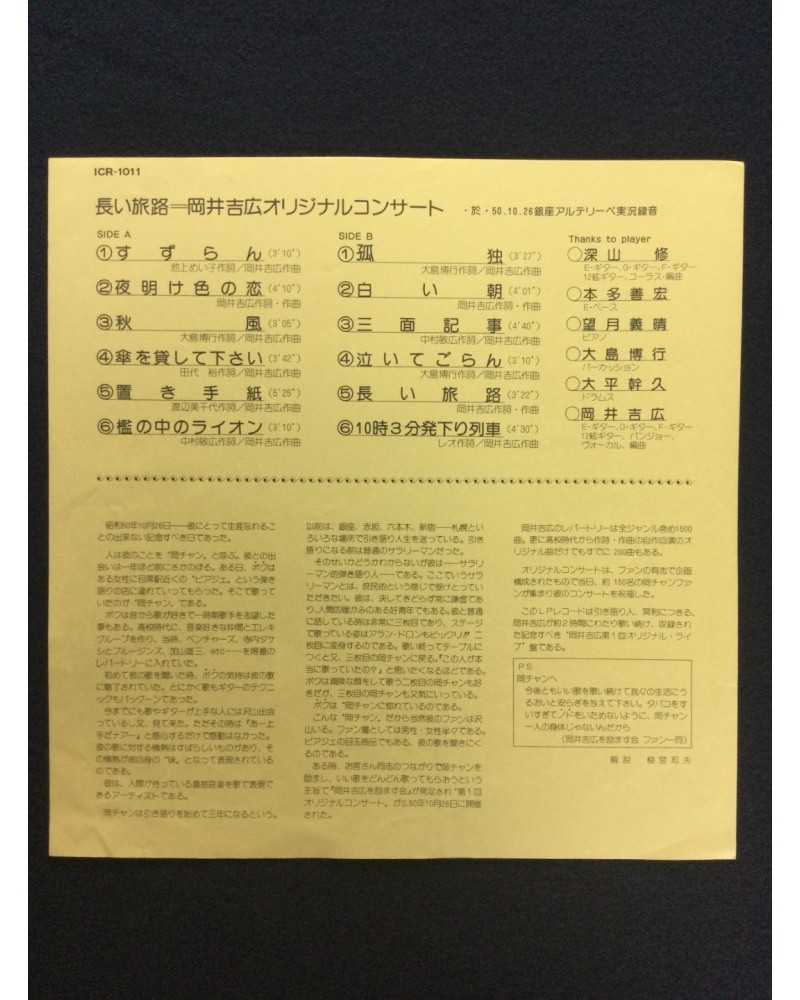 ICR-1011
長い旅路=岡井吉広オリジナルコンサート ・於・50.10.26銀座アルテリーベ実況録音
SIDE A
①すずらん(3'10")
池上めい子作詞/岡井吉広作曲
②夜明け色の恋(4'10")
岡井吉広作詞・作曲
③秋風(3'05")
大島博行作詞/岡井吉広作曲
④傘を貸して下さい(3'42")
田代 裕作詞/岡井吉広作曲
⑤置き手紙(5'25")
渡辺美千代作詞/岡井吉広作曲
⑥檻の中のライオン(3'10")
中村敏広作詞/岡井吉広作曲
SIDE B
①孤独(3'27")
大島博行作詞/岡井吉広作曲
②白い朝(4'01")
岡井吉広作詞・作曲
③三面記事(4'40")
中村敏広作詞/岡井吉広作曲
④泣いてごらん(3'10")
大島博行作詞/岡井吉広作曲
⑤長い旅路(3'22")
岡井吉広作詞・作曲
⑥10時3分発下り列車(4'30")
レオ作詞/岡井吉広作曲
Thanks to player
○深山修
E・ギター、G・ギター、F・ギター
12絃ギター、コーラス・編曲
○本多善宏
E・ベース
○望月義晴
ピアノ
○大島博行
パーカッション
○大平幹久
ドラムス
○岡井吉広
E・ギター、G・ギター、F・ギター
12絃ギター、バンジョー、
ヴォーカル、編曲
昭和50年10月26日——彼にとって生涯忘れるこ
との出来ない記念すべき日であった。
人は彼のことを "岡チャン" と呼ぶ。彼との出
会いは一年ほど前にさかのぼる。ある日、ボクは
ある女性に目黒駅近くの "ピアジェ" という弾き
語りの店に連れていってもらった。そこで歌って
いたのが "岡チャン" である。
ボクは昔から歌が好きで一時期歌手を志望した
事もある。高校時代に、音楽好きな仲間とエレキ
グループを作り、当時、ベンチャーズ、寺内タケ
シとブルージンズ、加山雄三、etc——を得意の
レパートリーに入れていた。
初めて彼の歌を聞いた時、ボクの気持は彼の歌
に魅了されていた。とにかく歌もギターのテクニ
ックもバツグーンであった。
今までにも歌やギターが上手な人には沢山出会
っているし又、見て来た。ただその時は『あー上
手だナアー』と感心するだけで感動はなかった。
彼の歌に対する情熱はすばらしいものがあり、そ
の情熱が彼自身の "味" となって表現されている
のである。
彼は、人間が持っている喜怒哀楽を歌で表現で
きるアーティストである。
岡チャンは引き語りを始めて三年になるという。
以前は、銀座、赤坂、六本木、新宿——札幌とい
ろいろな場所で引き語り人生を送っている。引き
語りになる前は普通のサラリーマンだった。
そのせいかどうかわからないが彼は——サラリ
ーマン的弾き語り人——である。ここでいうサラ
リーマンとは、庶民的という感じで受けとってい
ただきたい。彼は、決してきどらず常に謙虚であ
り、人間的暖かみのある好青年でもある。彼と普通
に話している時は非常に三枚目であり、ステージ
で歌っている姿はアラン・ドロンもビックリ!!二
枚目に変身するのである。歌い終ってテーブルに
つくと又、三枚目の岡チャンに戻る。『この人が本
当に歌っていたの?』と思いたくなるほどである。
ボクは真険な顔をして歌う二枚目の岡チャンも好
きだが、三枚目の岡チャンも又気にいっている。
ボクは "岡チャン" に惚れているのである。
こんな "岡チャン" だから当然彼のファンは沢
山いる。ファン層としては男性・女性半々である。
ピアジェの目玉商品でもある、彼の歌を聞きにく
るのである。
ある時、お客さん同志のつながりで岡チャンを
励まし、いい歌をどんどん歌ってもらおうという
主旨で『岡井吉広を励ます会』が発足され "第1回
オリジナルコンサート" がS.50年10月26日に開催
された。
岡井吉広のレパートリーは全ジャンル含め1500
曲。更に高校時代から作詩・作曲の自作自演のオ
リジナル曲だけでもすでに 200曲もある。
オリジナルコンサートは、ファンの有志で企画
構成されたもので当日、約 150名の岡チャンファ
ンが集まり彼のコンサートを祝福した。
このLPレコードは引き語り人、冥利につきる、
岡井吉広が約2時間にわたり歌い続け、収録され
た記念すべき "岡井吉広第1回オリジナル・ライ
ブ" 盤である。
PS
岡チャンへ
今後ともいい歌を歌い続けて我々の生活にう
るおいと安らぎを与えて下さい。タバコをす
いすぎてノドをいためないように、岡チャン
一人の身体じゃないんだから
(岡井吉広を励ます会 ファン一同)
解説